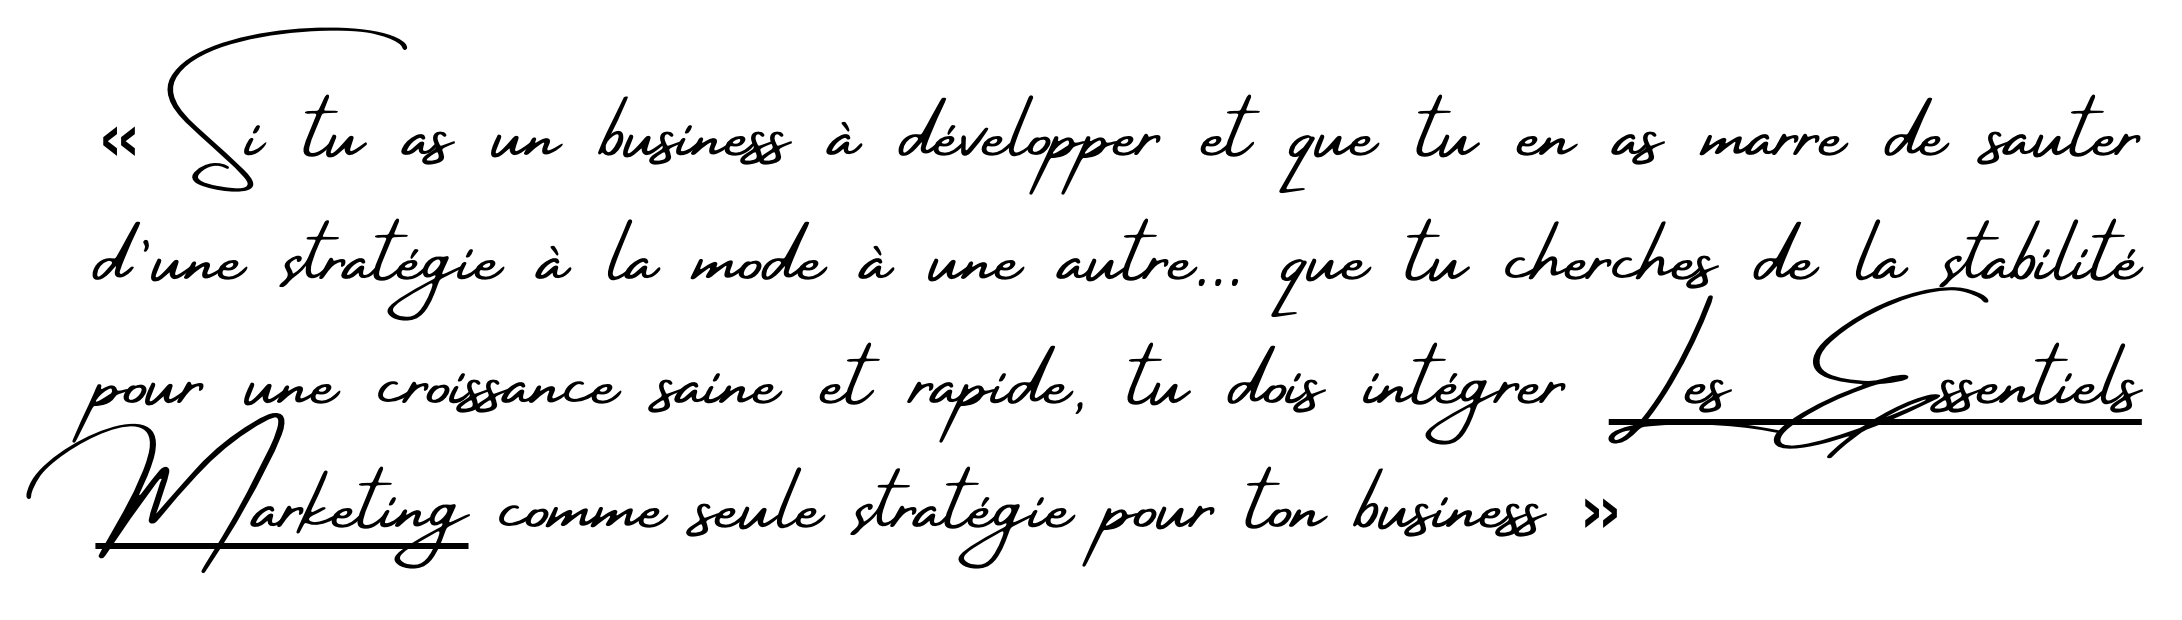 « Si tu as un business à développer et que tu en as marre de sauter
d'une stratégie à la mode à une autre... que tu cherches de la stabilité
pour une croissance saine et rapide, tu dois intégrer Les Essentiels
Marketing comme seule stratégie pour ton business »